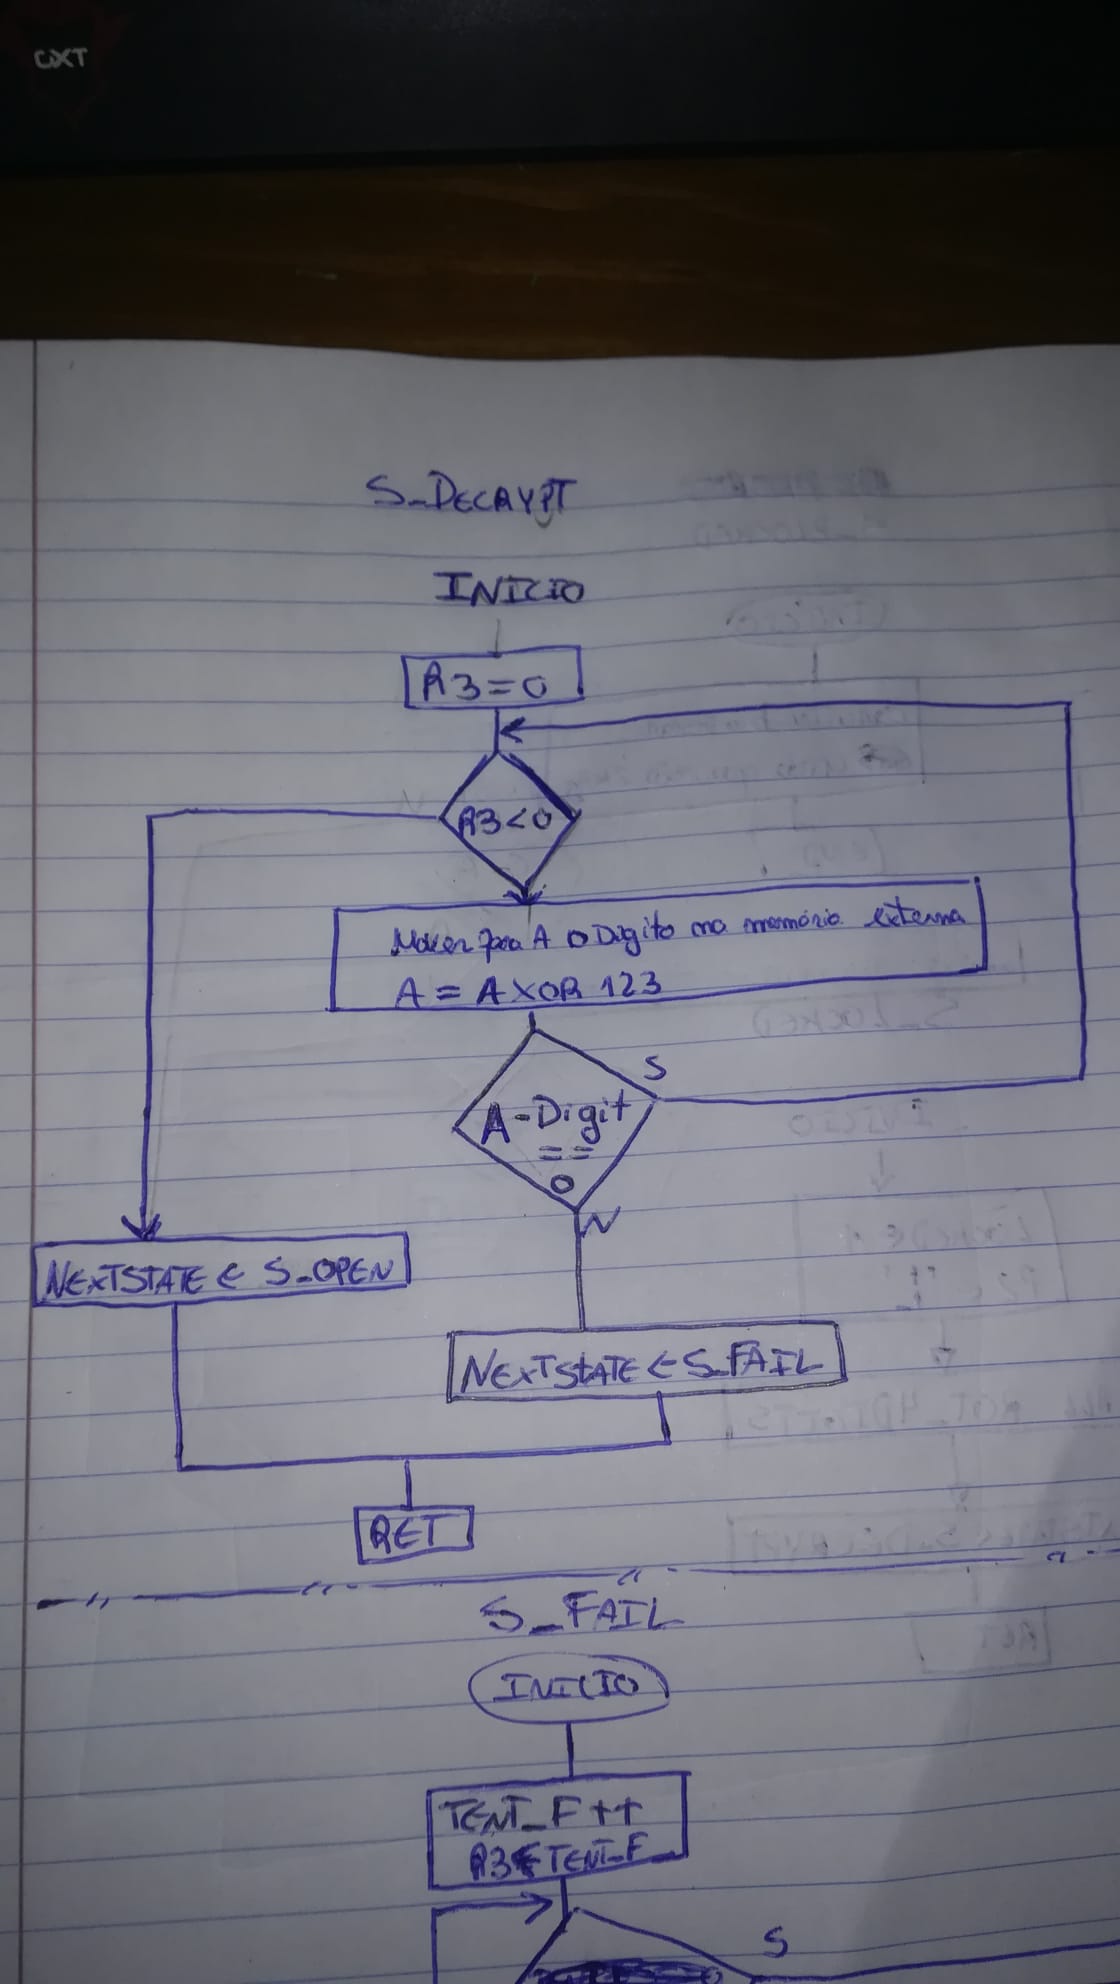 GXT
S_DECRYPT
INICIO
R3=0
R3<0
N
Mover para A o Digito na memória externa
A = A XOR 123
S
A-Digit
==
0
N
NEXTSTATE ← S_OPEN
NEXTSTATE ← S_FAIL
RET
S_FAIL
INICIO
TENT_F++
R3←TENT_F
S